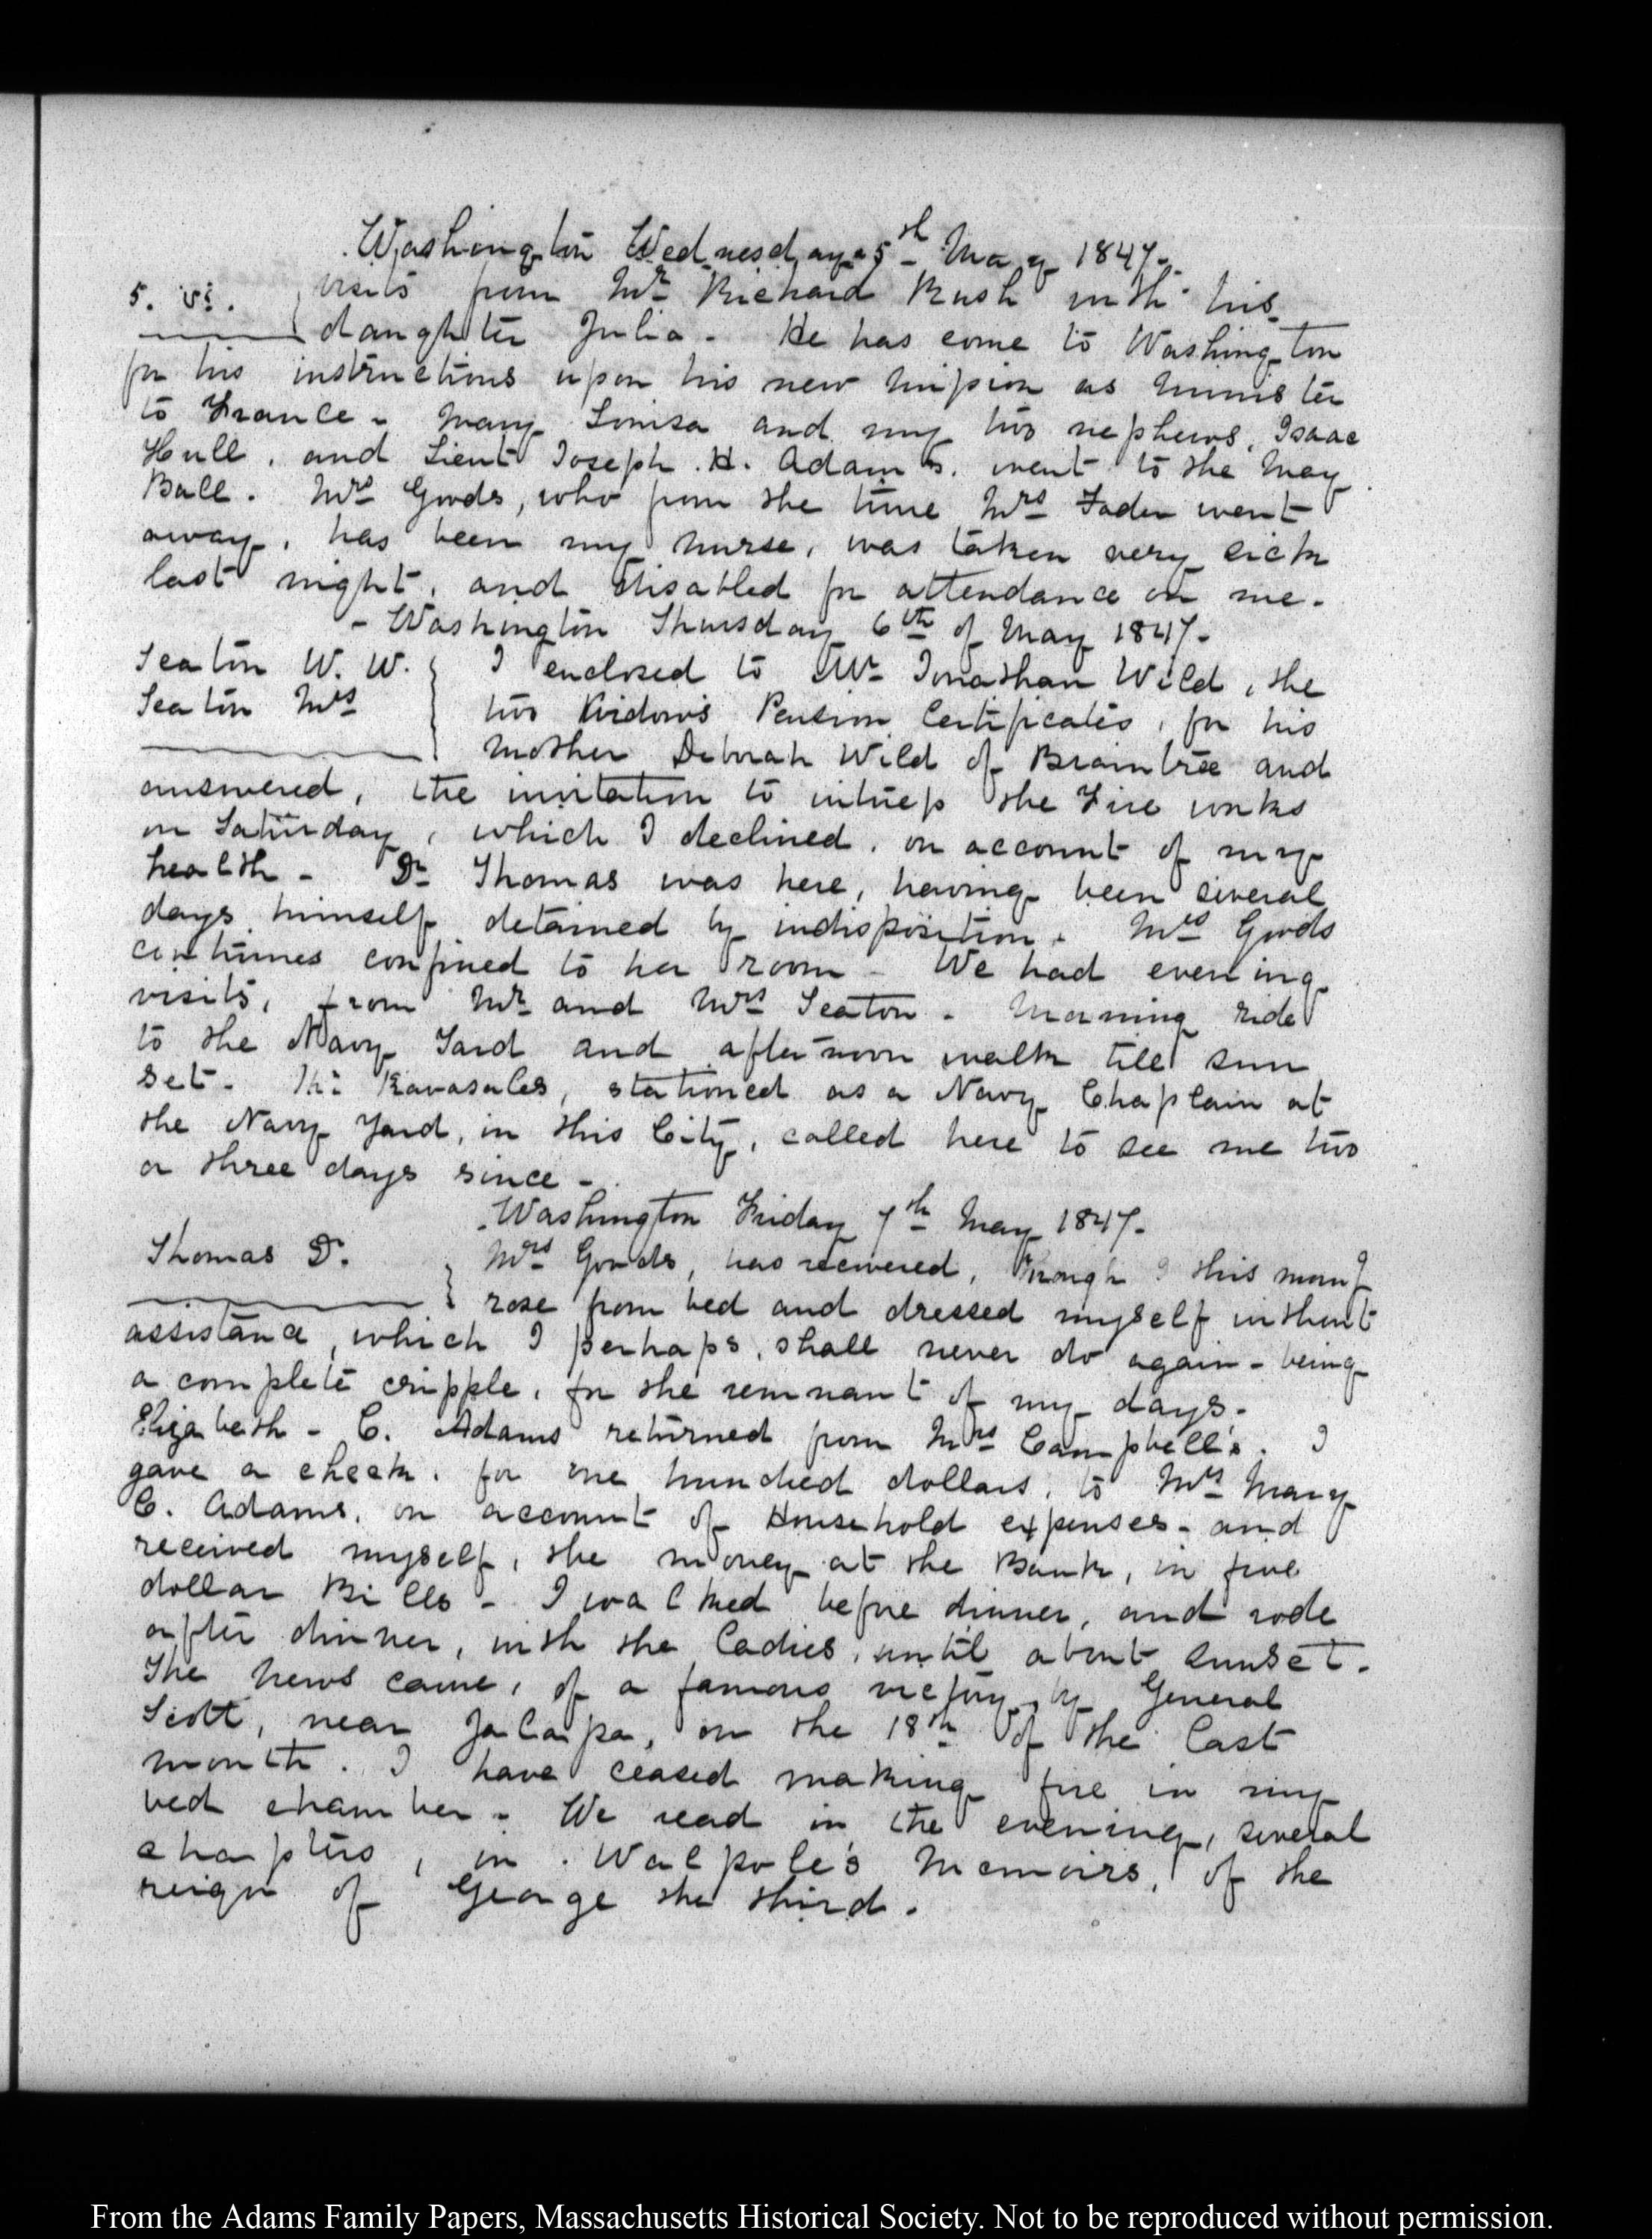 Washington Wednesday 5th May 1847.
5. VI. visits from Mr Richard Rush with his
daughter Julia. He has come to Washington
for his instructions upon his new mission as Minister
to France. Mary Louisa and my two nephews, Isaac
Hull, and Lieut Joseph. H. Adams. went to the May
Ball. Mrs Goods, who from the time Mrs Fader went
away, has been my nurse, was taken very sick
last night, and disabled for attendance on me.
- Washington Thursday 6th of May 1847.
Seaton W. W. I enclosed to Mr Jonathan Wild, the
Seaton Mrs two Widow's Pension Certificates, for his
mother Deborah Wild of Braintree and
answered, the invitation to witness the Fire works
on Saturday, which I declined, on account of my
health - Dr Thomas was here, having been several
days himself detained by indisposition. Mrs Goods
continues confined to her room - We had evening
visits, from Mr and Mrs Seaton - Morning ride
to the Navy Yard and afternoon walk till sun
set. Mr stationed as a Navy Chaplain at
the Navy Yard, in this City, called here to see me two
or three days since -
Washington Friday 7th May 1847.
Thomas Dr. Mrs Goods, has recovered, though I this morng
rose from bed and dressed myself without
assistance, which I perhaps, shall never do again - being
a complete cripple, for the remnant of my days.
Elizabeth - C. Adams returned from Mrs Campbell's. I
gave a check, for one hundred dollars, to Mrs Mary
C. Adams, on account of Household expenses - and
received myself, the money at the Bank, in five
dollar Bills - I walked before dinner, and rode
after dinner, with the Ladies, until about sunset.
The news came, of a famous victory, by General
Scott, near Jalapa, on the 18th of the last
month. I have ceased making fire in my
bed chamber - We read in the evening, several
chapters, in Walpole's Memoirs, of the
reign of George the third.
From the Adams Family Papers, Massachusetts Historical Society. Not to be reproduced without permission.